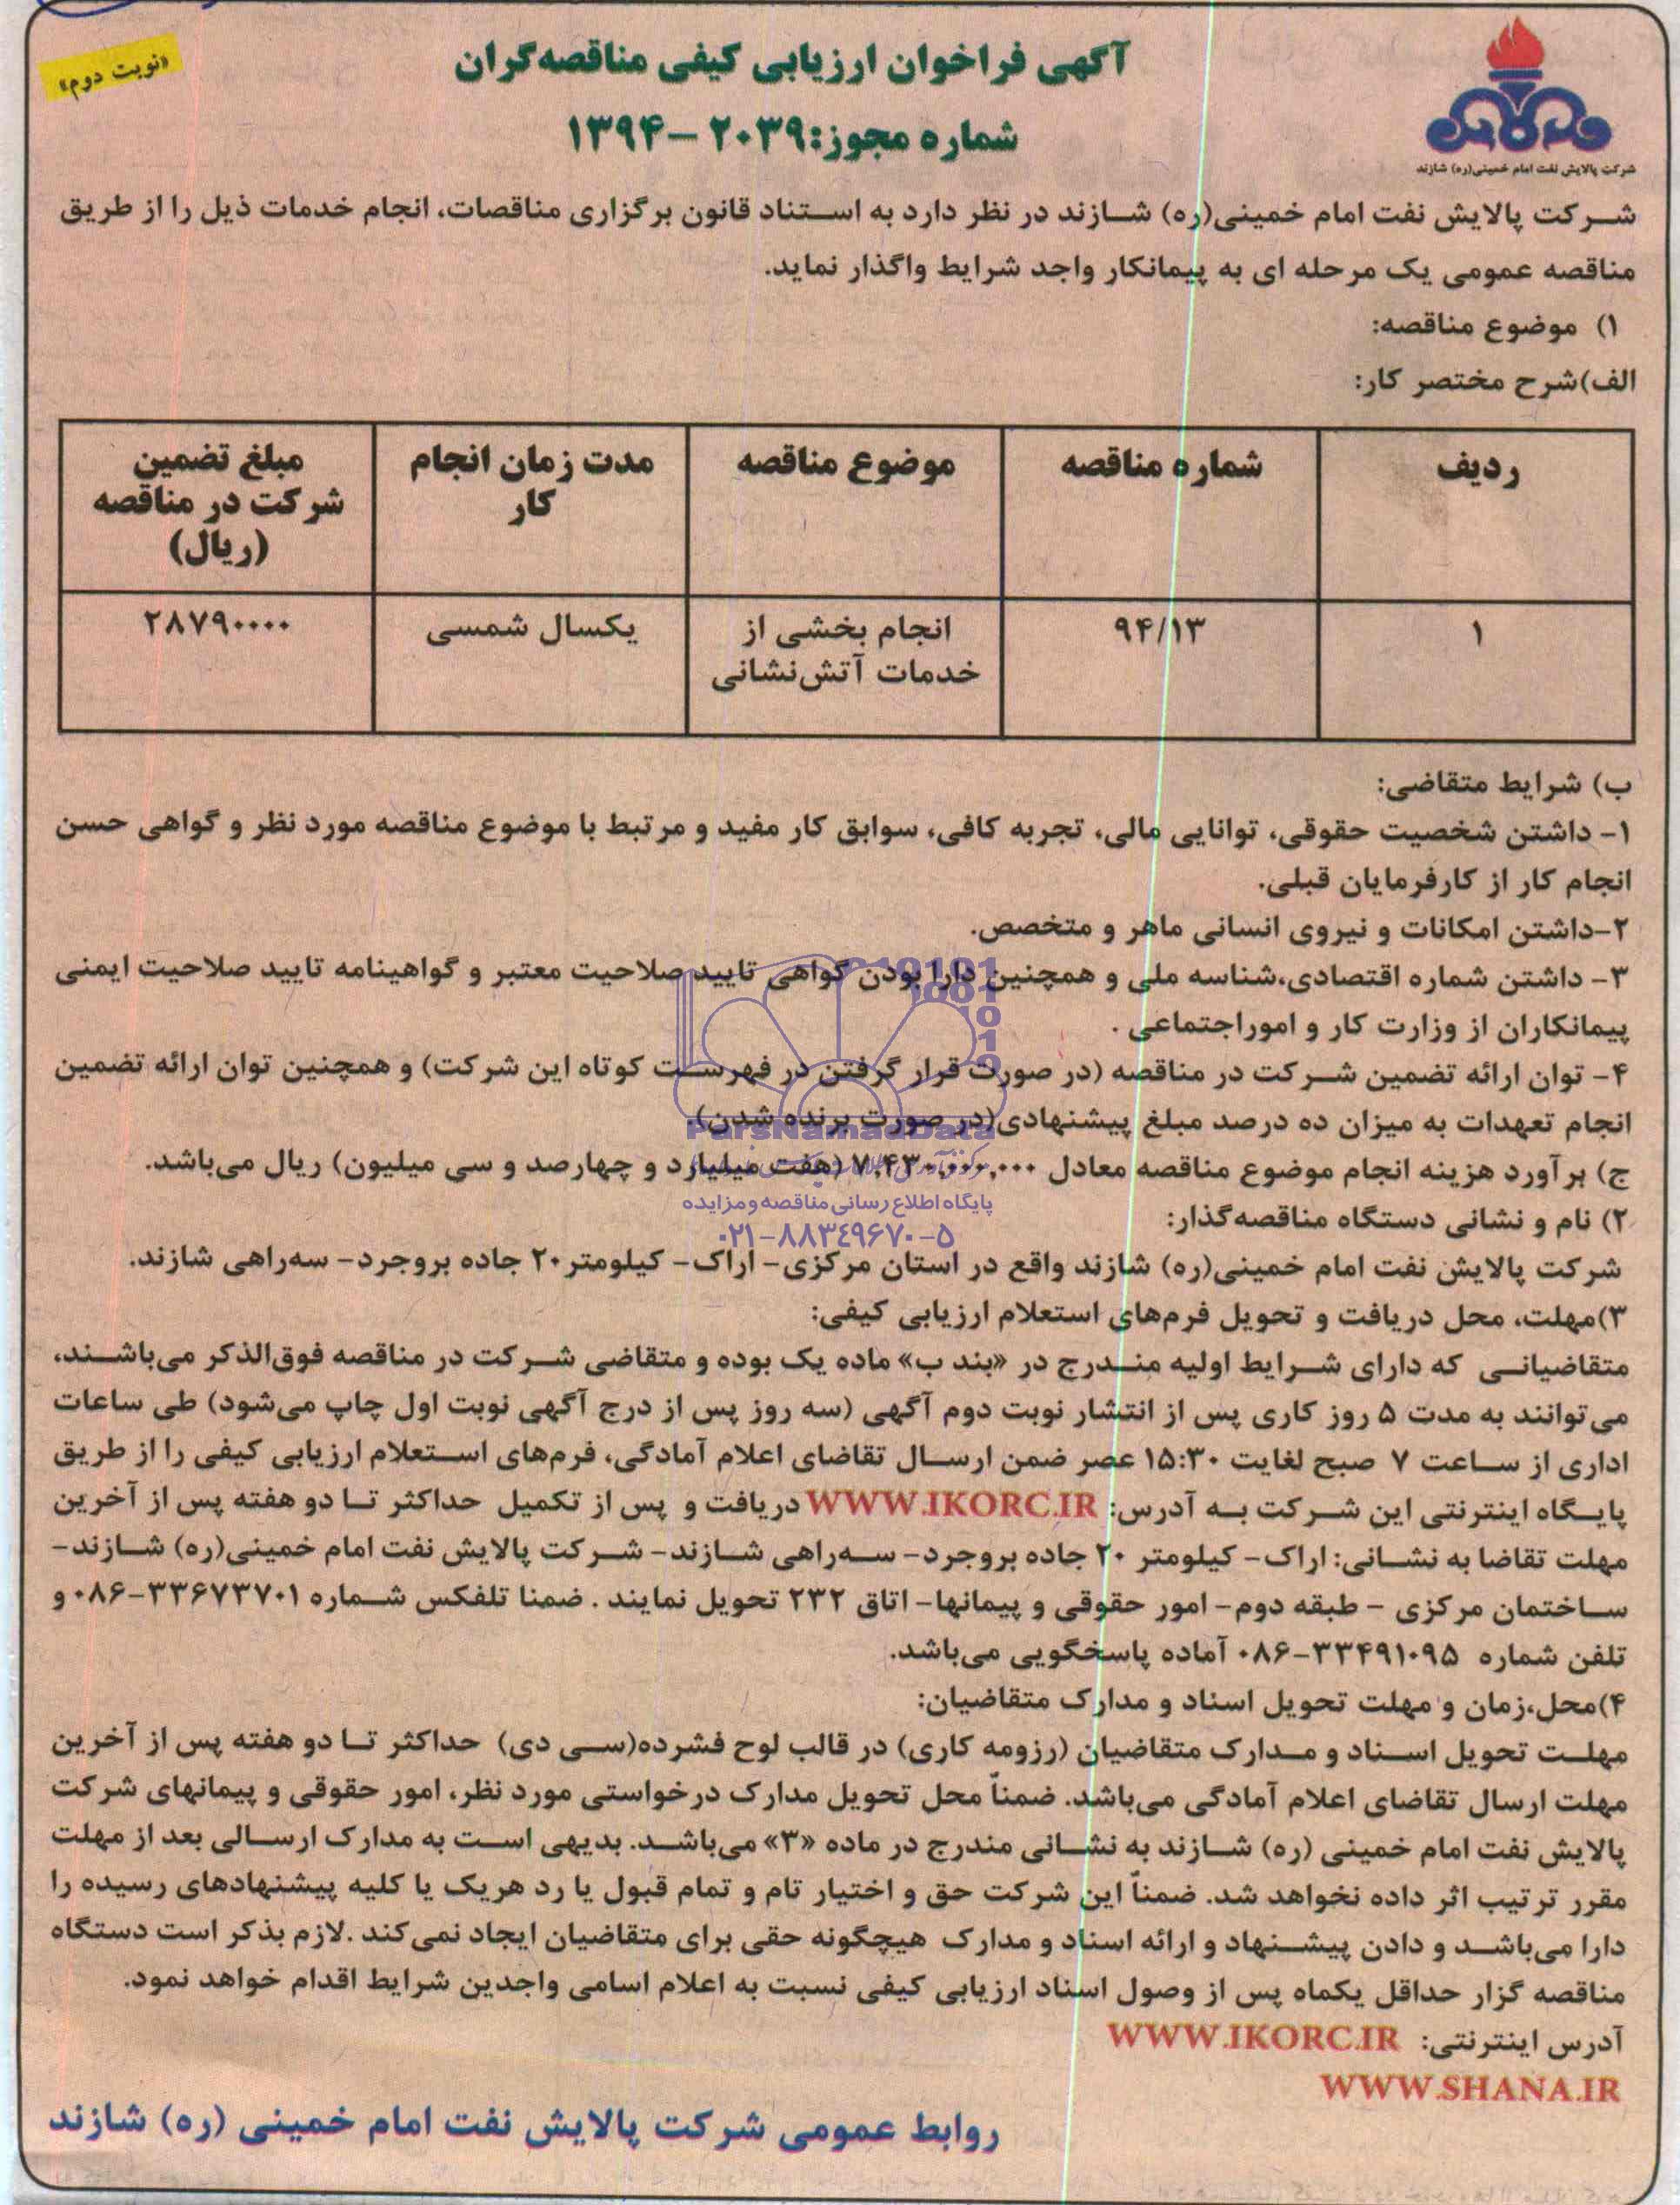 «نوبت دوم»
آگهی فراخوان ارزیابی کیفی مناقصه‌گران
شماره مجوز:۲۰۳۹ –۱۳۹۴
شرکت پالایش نفت امام خمینی(ره) شازند
شرکت پالایش نفت امام خمینی(ره) شازند در نظر دارد به استناد قانون برگزاری مناقصات، انجام خدمات ذیل را از طریق
مناقصه عمومی یک مرحله ای به پیمانکار واجد شرایط واگذار نماید.
۱) موضوع مناقصه:
الف)شرح مختصر کار:
ردیف
شماره مناقصه
موضوع مناقصه
مدت زمان انجام
کار
مبلغ تضمین
شرکت در مناقصه
(ریال)
۱
۹۴/۱۳
انجام بخشی از
خدمات آتش‌نشانی
یکسال شمسی
۲۸۷۹۰۰۰۰
ب) شرایط متقاضی:
۱- داشتن شخصیت حقوقی، توانایی مالی، تجربه کافی، سوابق کار مفید و مرتبط با موضوع مناقصه مورد نظر و گواهی حسن
انجام کار از کارفرمایان قبلی.
۲-داشتن امکانات و نیروی انسانی ماهر و متخصص.
۳- داشتن شماره اقتصادی،شناسه ملی و همچنین دارا بودن گواهی تایید صلاحیت معتبر و گواهینامه تایید صلاحیت ایمنی
پیمانکاران از وزارت کار و اموراجتماعی .
۴- توان ارائه تضمین شرکت در مناقصه (در صورت قرار گرفتن در فهرست کوتاه این شرکت) و همچنین توان ارائه تضمین
انجام تعهدات به میزان ده درصد مبلغ پیشنهادی(در صورت برنده شدن).
ParsNamadData
ج) برآورد هزینه انجام موضوع مناقصه معادل ۷,۴۳۰,۰۰۰,۰۰۰ (هفت میلیارد و چهارصد و سی میلیون) ریال می‌باشد.
پایگاه اطلاع رسانی مناقصه و مزایده
۲) نام و نشانی دستگاه مناقصه‌گذار:
۰۲۱-۸۸۳۴۹۶۷۰-۵
شرکت پالایش نفت امام خمینی(ره) شازند واقع در استان مرکزی- اراک- کیلومتر۲۰ جاده بروجرد- سه‌راهی شازند.
۳)مهلت، محل دریافت و تحویل فرم‌های استعلام ارزیابی کیفی:
متقاضیانی که دارای شرایط اولیه مندرج در «بند ب» ماده یک بوده و متقاضی شرکت در مناقصه فوق‌الذکر می‌باشند،
می‌توانند به مدت ۵ روز کاری پس از انتشار نوبت دوم آگهی (سه روز پس از درج آگهی نوبت اول چاپ می‌شود) طی ساعات
اداری از ساعت ۷ صبح لغایت ۱۵:۳۰ عصر ضمن ارسال تقاضای اعلام آمادگی، فرم‌های استعلام ارزیابی کیفی را از طریق
پایگاه اینترنتی این شرکت به آدرس: WWW.IKORC.IR دریافت و پس از تکمیل حداکثر تا دو هفته پس از آخرین
مهلت تقاضا به نشانی: اراک- کیلومتر ۲۰ جاده بروجرد- سه‌راهی شازند- شرکت پالایش نفت امام خمینی(ره) شازند-
ساختمان مرکزی – طبقه دوم- امور حقوقی و پیمانها- اتاق ۲۳۲ تحویل نمایند . ضمنا تلفکس شماره ۳۳۶۷۳۷۰۱-۰۸۶ و
تلفن شماره ۳۳۴۹۱۰۹۵-۰۸۶ آماده پاسخگویی می‌باشد.
۴)محل،زمان و مهلت تحویل اسناد و مدارک متقاضیان:
مهلت تحویل اسناد و مدارک متقاضیان (رزومه کاری) در قالب لوح فشرده(سی دی) حداکثر تا دو هفته پس از آخرین
مهلت ارسال تقاضای اعلام آمادگی می‌باشد. ضمناً محل تحویل مدارک درخواستی مورد نظر، امور حقوقی و پیمانهای شرکت
پالایش نفت امام خمینی (ره) شازند به نشانی مندرج در ماده «۳» می‌باشد. بدیهی است به مدارک ارسالی بعد از مهلت
مقرر ترتیب اثر داده نخواهد شد. ضمناً این شرکت حق و اختیار تام و تمام قبول یا رد هریک یا کلیه پیشنهادهای رسیده را
دارا می‌باشد و دادن پیشنهاد و ارائه اسناد و مدارک هیچگونه حقی برای متقاضیان ایجاد نمی‌کند .لازم بذکر است دستگاه
مناقصه گزار حداقل یکماه پس از وصول اسناد ارزیابی کیفی نسبت به اعلام اسامی واجدین شرایط اقدام خواهد نمود.
آدرس اینترنتی: WWW.IKORC.IR
WWW.SHANA.IR
روابط عمومی شرکت پالایش نفت امام خمینی (ره) شازند